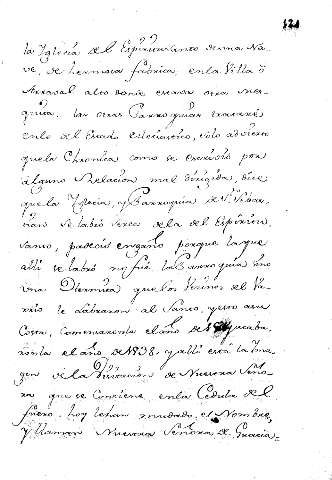 121
la Yglecia del Espiritusanto de una Na-
ve, de hermosa fabrica, en la Villa ò
Arraval alto donde estava otra mes-
quita. las otras Parroquias tratarè
en lo del Estado eclesiastico, solo advierto
que la Chronica como se escrivio por
alguno Relacion mal dirigida, dice
que la Yglecia, y Parroquia de Sn. Sebas-
tian se labró serca de la del Espiritu
santo, padeció engaño porque la que
alli se labró no fué la Parroquia sino
una Hermita que los Vesinos del Va-
rrio le labraron al Santo, y esto a su
Costa, Comensaronla el año de y acaba-
ronla el año de 1538 y alli está la Yma-
gen de la Visitacion de Nuestra Seño-
ra que se contiene en la Cedula del
fuero, hoy le han mudado el Nombre,
y llaman Nuestra Señora de Gracia-